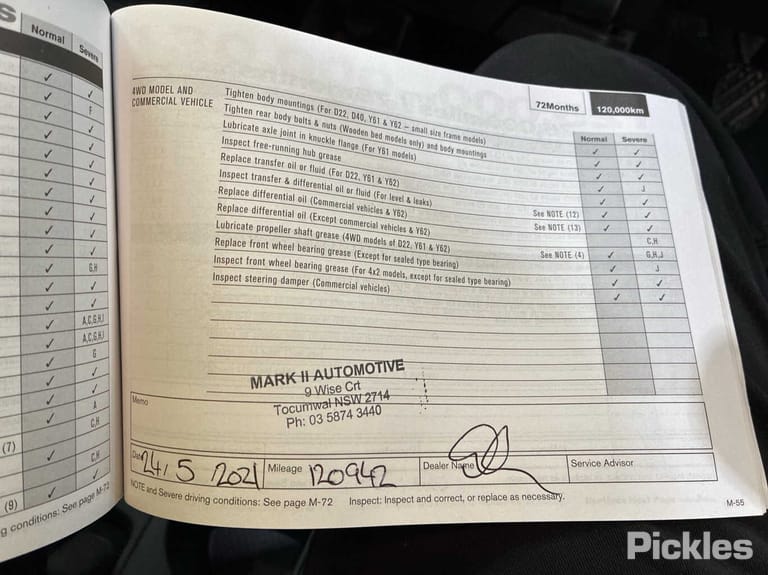 S
Normal
Severe
✓ ✓
✓ F
✓ ✓
✓ ✓
✓ ✓
✓ ✓
✓ ✓
✓ ✓
✓ ✓
✓ G,H
✓ ✓
✓ ✓
✓ A,C,G,H,I
✓ A,C,G,H,I
✓ G
✓ ✓
✓ ✓
✓ A
C,H
(7) ✓
✓ C,H
(9) ✓ ✓
g conditions: See page M-72
72Months 120,000km
4WD MODEL AND
COMMERCIAL VEHICLE
Normal Severe
Tighten body mountings (For D22, D40, Y61 & Y62 – small size frame models) ✓ ✓
Tighten rear body bolts & nuts (Wooden bed models only) and body mountings ✓ ✓
Lubricate axle joint in knuckle flange (For Y61 models) ✓ ✓
Inspect free-running hub grease ✓ J
Replace transfer oil or fluid (For D22, Y61 & Y62) ✓ ✓
Inspect transfer & differential oil or fluid (For level & leaks) ✓ ✓
Replace differential oil (Commercial vehicles & Y62) See NOTE (12) ✓ ✓
Replace differential oil (Except commercial vehicles & Y62) See NOTE (13)
Lubricate propeller shaft grease (4WD models of D22, Y61 & Y62) C,H
Replace front wheel bearing grease (Except for sealed type bearing) See NOTE (4) ✓ G,H,J
Inspect front wheel bearing grease (For 4x2 models, except for sealed type bearing) ✓ J
Inspect steering damper (Commercial vehicles) ✓ ✓
MARK II AUTOMOTIVE
9 Wise Crt
Tocumwal NSW 2714
Ph: 03 5874 3440
Memo
Date 24, 5 2021 Mileage 120942 Dealer Name Service Advisor
NOTE and Severe driving conditions: See page M-72 Inspect: Inspect and correct, or replace as necessary.
M-55
Pickles